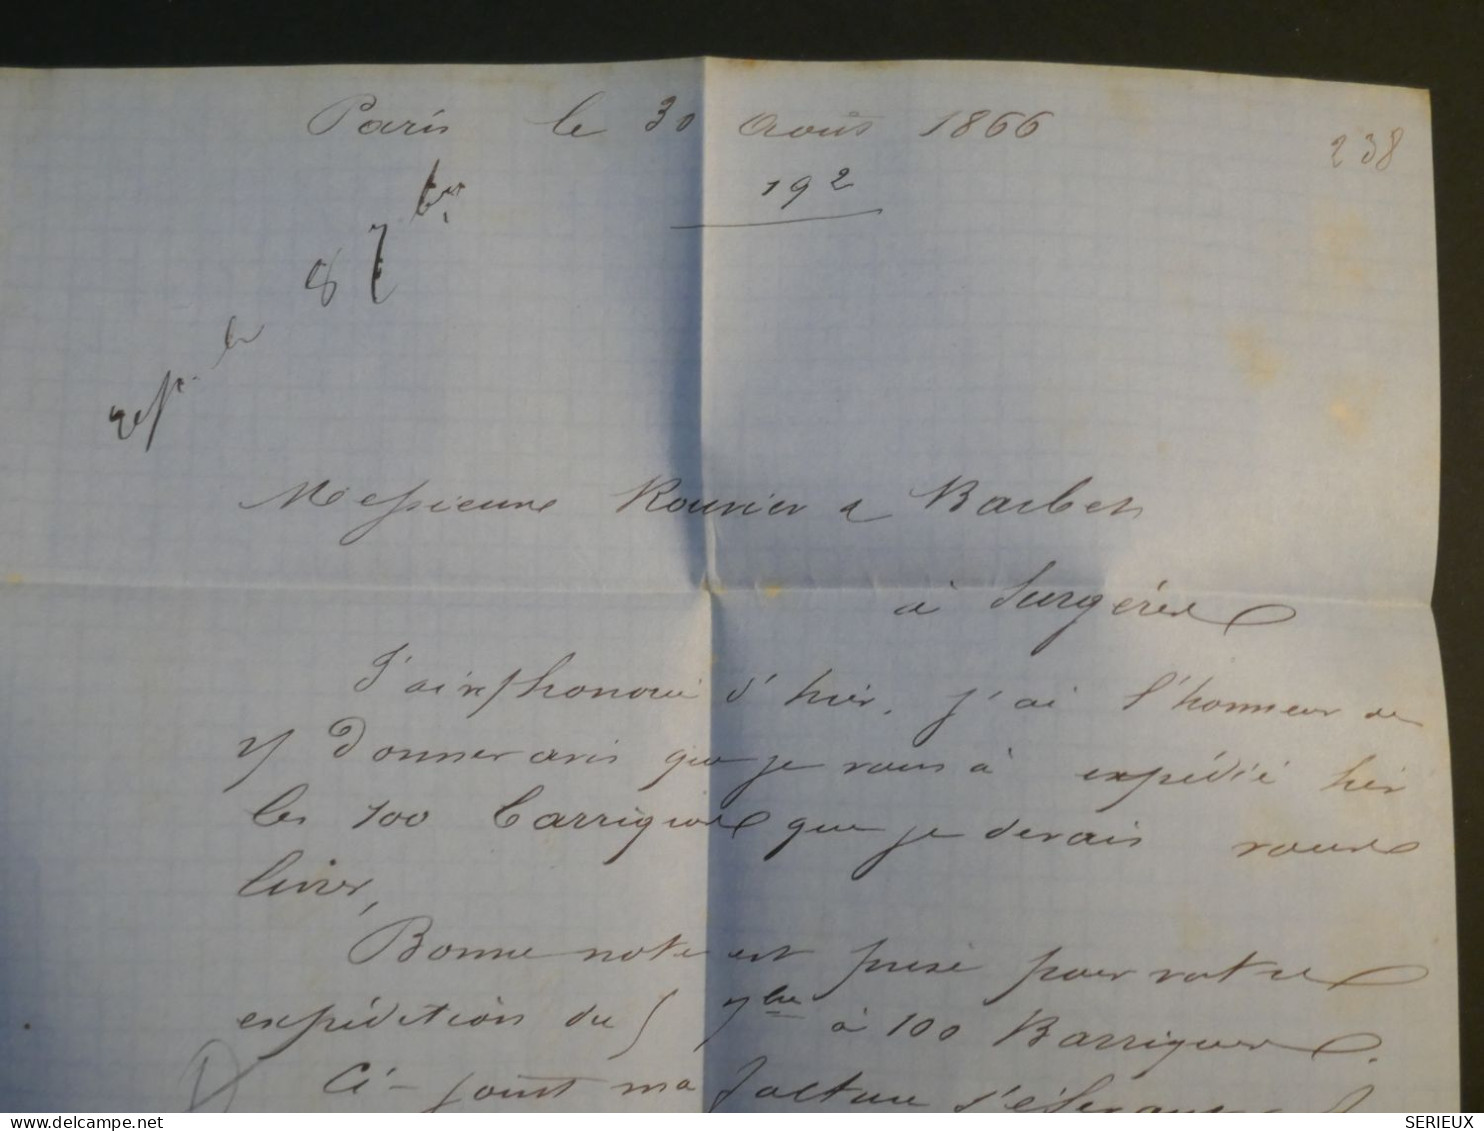 Paris le 30 Août 1866
238
192
rep. le 8 7bre
Messieurs Rouvier & Barbet
à Surgères
J'ai rep honoré d'hier. j'ai l'honneur de
y donner avis que je vous à expédié hier
les 100 barriques que je devais vous
livrer,
Bonne note est prise pour votre
expédition du 5 7bre à 100 Barriques.
Ci-joint ma facture s'élevant
SERIEUX